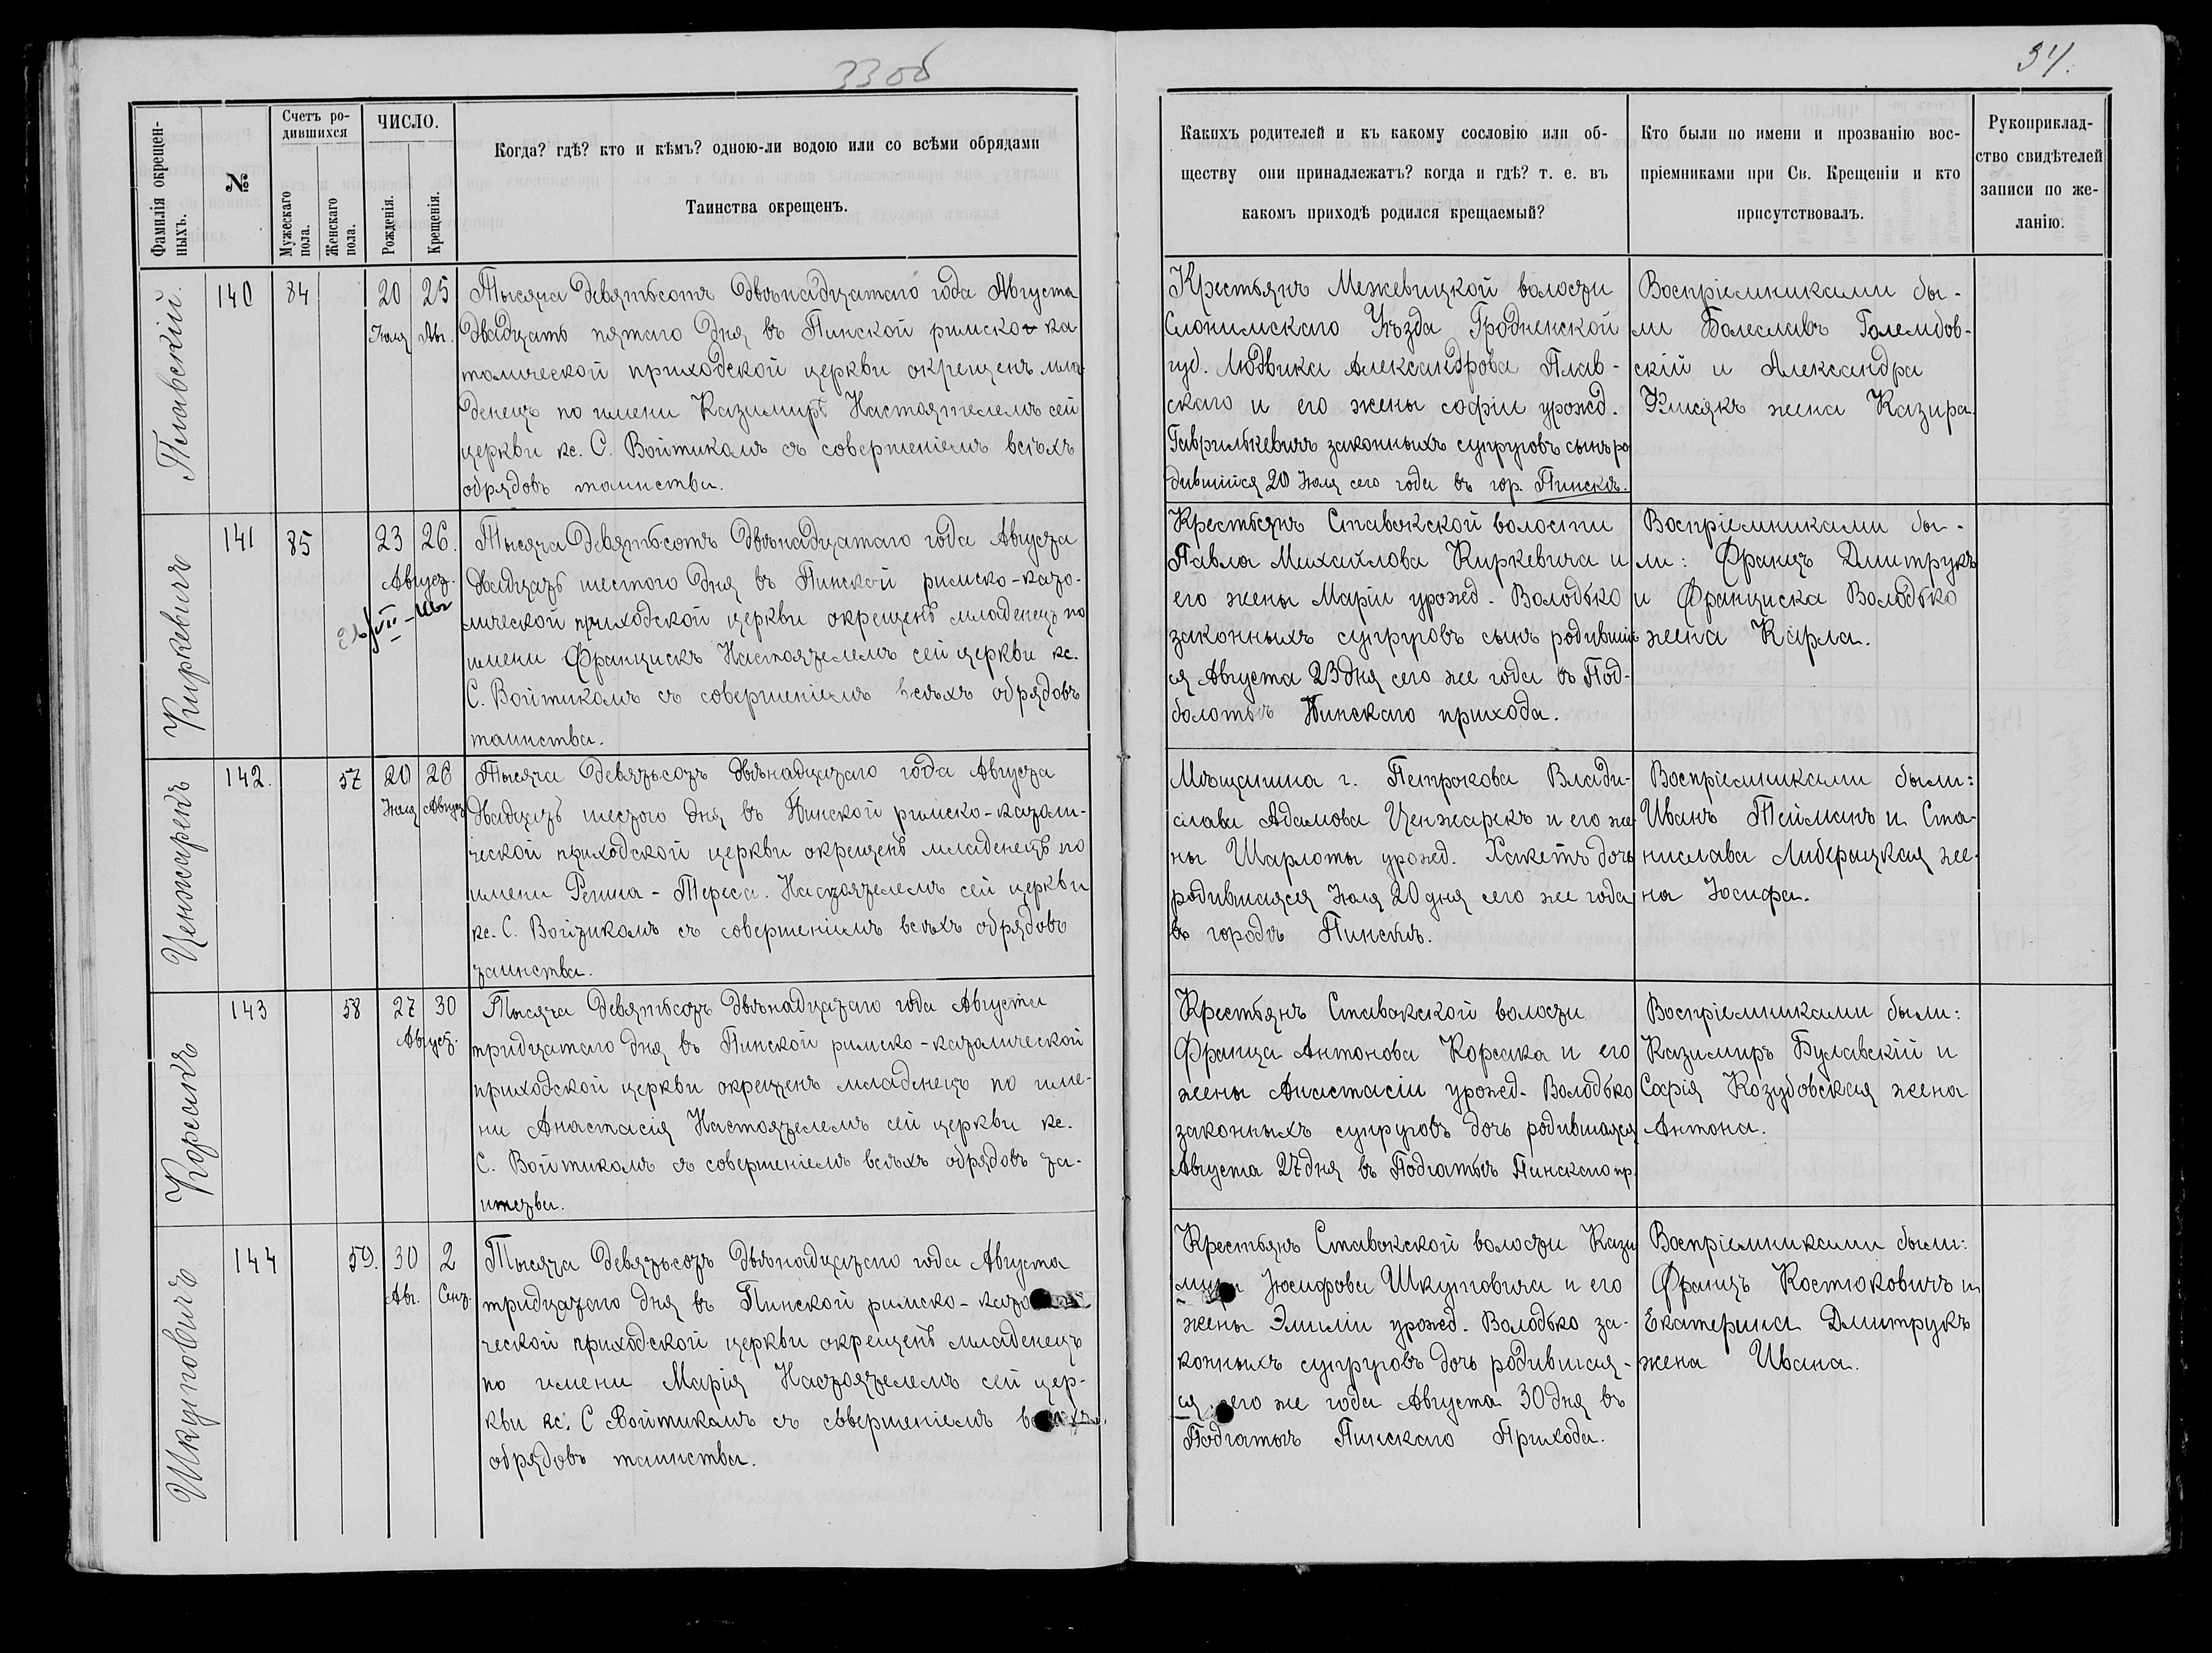 33об
34.
Фамилія окрещен-
ныхъ.
№
Счетъ ро-
дившихся
Мужескаго
пола.
Женскаго
пола.
ЧИСЛО.
Рожденія.
Крещенія.
Когда? гдѣ? кто и кѣмъ? одною-ли водою или со всѣми обрядами
Таинства окрещенъ.
Какихъ родителей и къ какому сословію или об-
ществу они принадлежатъ? когда и гдѣ? т. е. въ
какомъ приходѣ родился крещаемый?
Кто были по имени и прозванію вос-
пріемниками при Св. Крещеніи и кто
присутствовалъ.
Рукоприклад-
ство свидѣтелей
записи по же-
ланію.
Плавскій.
140
84
20
Іюля
25
Ав.
Тысяча девятьсотъ двѣнадцатаго года Августа
двадцать пятаго дня въ Пинской римско-ка
толической приходской церкви окрещенъ мла
денецъ по имени Казимиръ Настоятелемъ сей
церкви кс. С. Войтикомъ съ совершеніемъ всѣхъ
обрядовъ таинства.
Крестьянъ Межевицкой волости
Слонимскаго Уѣзда Гродненской
губ. Людвика Александрова Плав-
скаго и его жены Софіи урожд.
Гаврилькевичъ законныхъ супруговъ сынъ ро
дившійся 20 Іюля сего года въ гор. Пинскѣ.
Воспріемниками бы-
ли Болеславъ Голембов-
скій и Александра
жена Казира
Киркевичъ
141
85
23
26.
Август.
Тысяча девятьсотъ двѣнадцатаго года Августа
двадцать шестого дня въ Пинской римско-като-
лической приходской церкви окрещенъ младенецъ по
имени Францискъ Настоятелемъ сей церкви кс.
С. Войтикомъ съ совершеніемъ всѣхъ обрядовъ
таинства.
Крестьянъ Ставокской волости
Павла Михайлова Киркевича и
его жены Маріи урожд. Володько
законныхъ супруговъ сынъ родившій
ся Августа 23 дня сего же года въ Под-
болотьѣ Пинскаго прихода.
Воспріемниками бы-
ли: Францъ Дмитрукъ
и Франциска Володько
жена Карла.
Ценжарекъ
142.
57
20
Іюля
26
Август
Тысяча девятьсотъ двѣнадцатаго года Августа
двадцать шестого дня въ Пинской римско-католи-
ческой приходской церкви окрещенъ младенецъ по
имени Регина-Тереса. Настоятелемъ сей церкви
кс. С. Войтикомъ съ совершеніемъ всѣхъ обрядовъ
таинства.
Мѣщанина г. Петрокова Влади-
слава Адамова Ценжарекъ и его же
ны Шарлоты урожд. Хакетъ дочь
родившаяся Іюля 20 дня сего же года
въ городѣ Пинскѣ.
Воспріемниками были:
Иванъ Тейманъ и Ста-
нислава Либерацкая же-
на Іосифа.
Корсакъ
143
58
27
30
Август.
Тысяча девятьсотъ двѣнадцатаго года Августа
тридцатаго дня въ Пинской римско-католической
приходской церкви окрещенъ младенецъ по име-
ни Анастасія Настоятелемъ сей церкви кс.
С. Войтикомъ съ совершеніемъ всѣхъ обрядовъ та-
инства.
Крестьянъ Ставокской волости
Франца Антонова Корсака и его
жены Анастасіи урожд. Володько
законныхъ супруговъ дочь родившаяся
Августа 27 дня въ Подгатьѣ Пинскаго пр.
Воспріемниками были:
Казимиръ Булавскій и
Софія Козубовская жена
Антона.
Шкуповичъ
144
59.
30
Авг.
2
Сент.
Тысяча девятьсотъ двѣнадцатаго года Августа
тридцатаго дня въ Пинской римско-като
ческой приходской церкви окрещенъ младенецъ
по имени Марія Настоятелемъ сей цер-
кви кс. С Войтикомъ съ совершеніемъ всѣхъ
обрядовъ таинства.
Крестьянъ Ставокской волости Кази
мира Іосифова Шкуповича и его
жены Эмиліи урожд. Володько за-
конныхъ супруговъ дочь родившая-
ся сего же года Августа 30 дня въ
Подгатьѣ Пинскаго Прихода.
Воспріемниками были:
Францъ Костюковичъ и
Екатерина Дмитрукъ
жена Ивана.